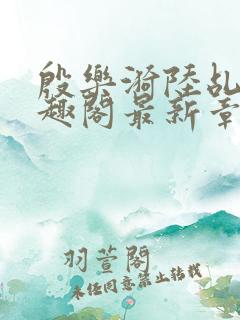 殷乐漪陆乩
趣阁最新章
羽萱阁
未经同意禁止转载